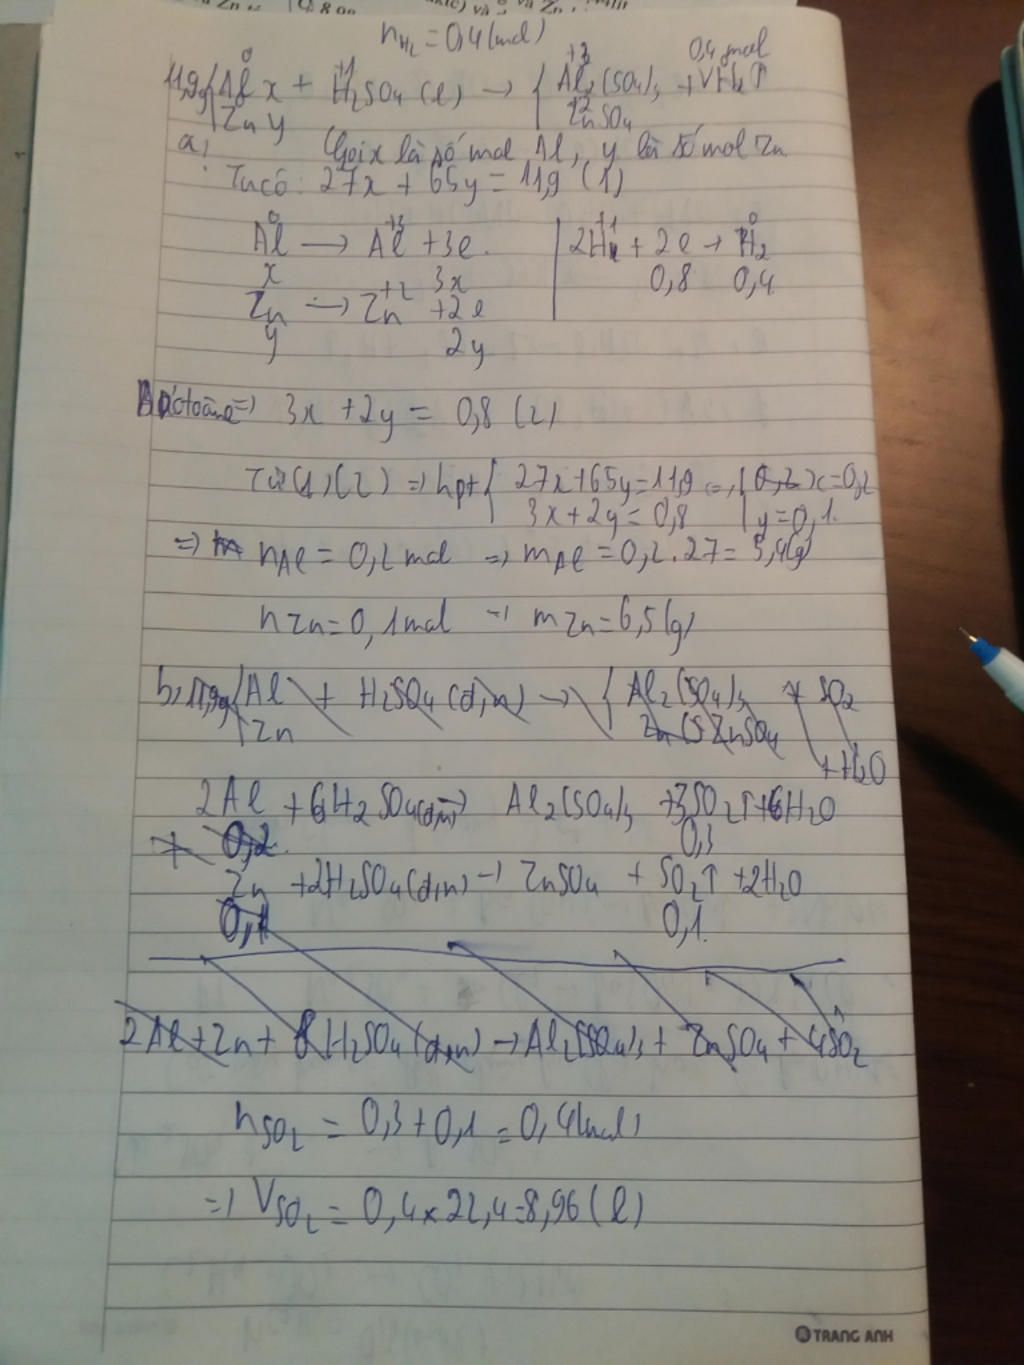 nH2 = 0,4 (mol)
11,9g { Al x + H2SO4 (l) → { Al2(SO4)3 + VH2↑
0 +1 +3 0,4 mol
Zn y +2 ZnSO4
a, Gọi x là số mol Al, y là số mol Zn
Ta có: 27x + 65y = 11,9 (1)
Al⁰ → Al⁺³ + 3e | 2H⁺¹ + 2e → H2⁰
x 3x 0,8 0,4
Zn → Zn⁺² + 2e
y 2y
⇒ 3x + 2y = 0,8 (2)
Từ (1), (2) ⇒ hpt { 27x + 65y = 11,9 ⇔ { x = 0,2
3x + 2y = 0,8 y = 0,1
⇒ nAl = 0,2 mol ⇒ mAl = 0,2.27 = 5,4(g)
nZn = 0,1 mol ⇒ mZn = 6,5 (g)
b, 11,9g { Al + H2SO4 (đ,n) → { Al2(SO4)3 + SO2
Zn ZnSO4 + H2O
2Al + 6H2SO4 (đ,n) → Al2(SO4)3 + 3SO2↑ + 6H2O
0,2 0,3
Zn + 2H2SO4 (đ,n) → ZnSO4 + SO2↑ + 2H2O
0,1 0,1
2Al + Zn + 8H2SO4 (đ,n) → Al2(SO4)3 + ZnSO4 + 4SO2
nSO2 = 0,3 + 0,1 = 0,4 (mol)
⇒ VSO2 = 0,4 × 22,4 = 8,96 (l)
TRANG ANH